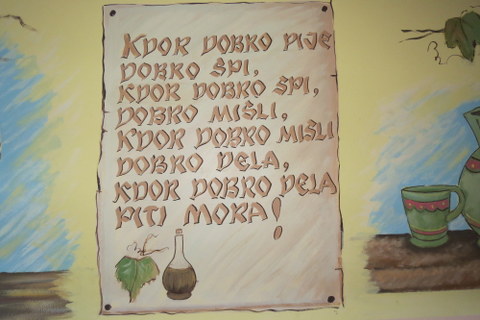 KDOR DOBRO PIJE
DOBRO SPI,
KDOR DOBRO SPI,
DOBRO MIŠLI,
KDOR DOBRO MIŠLI
DOBRO DELA,
KDOR DOBRO DELA
PITI MORA!